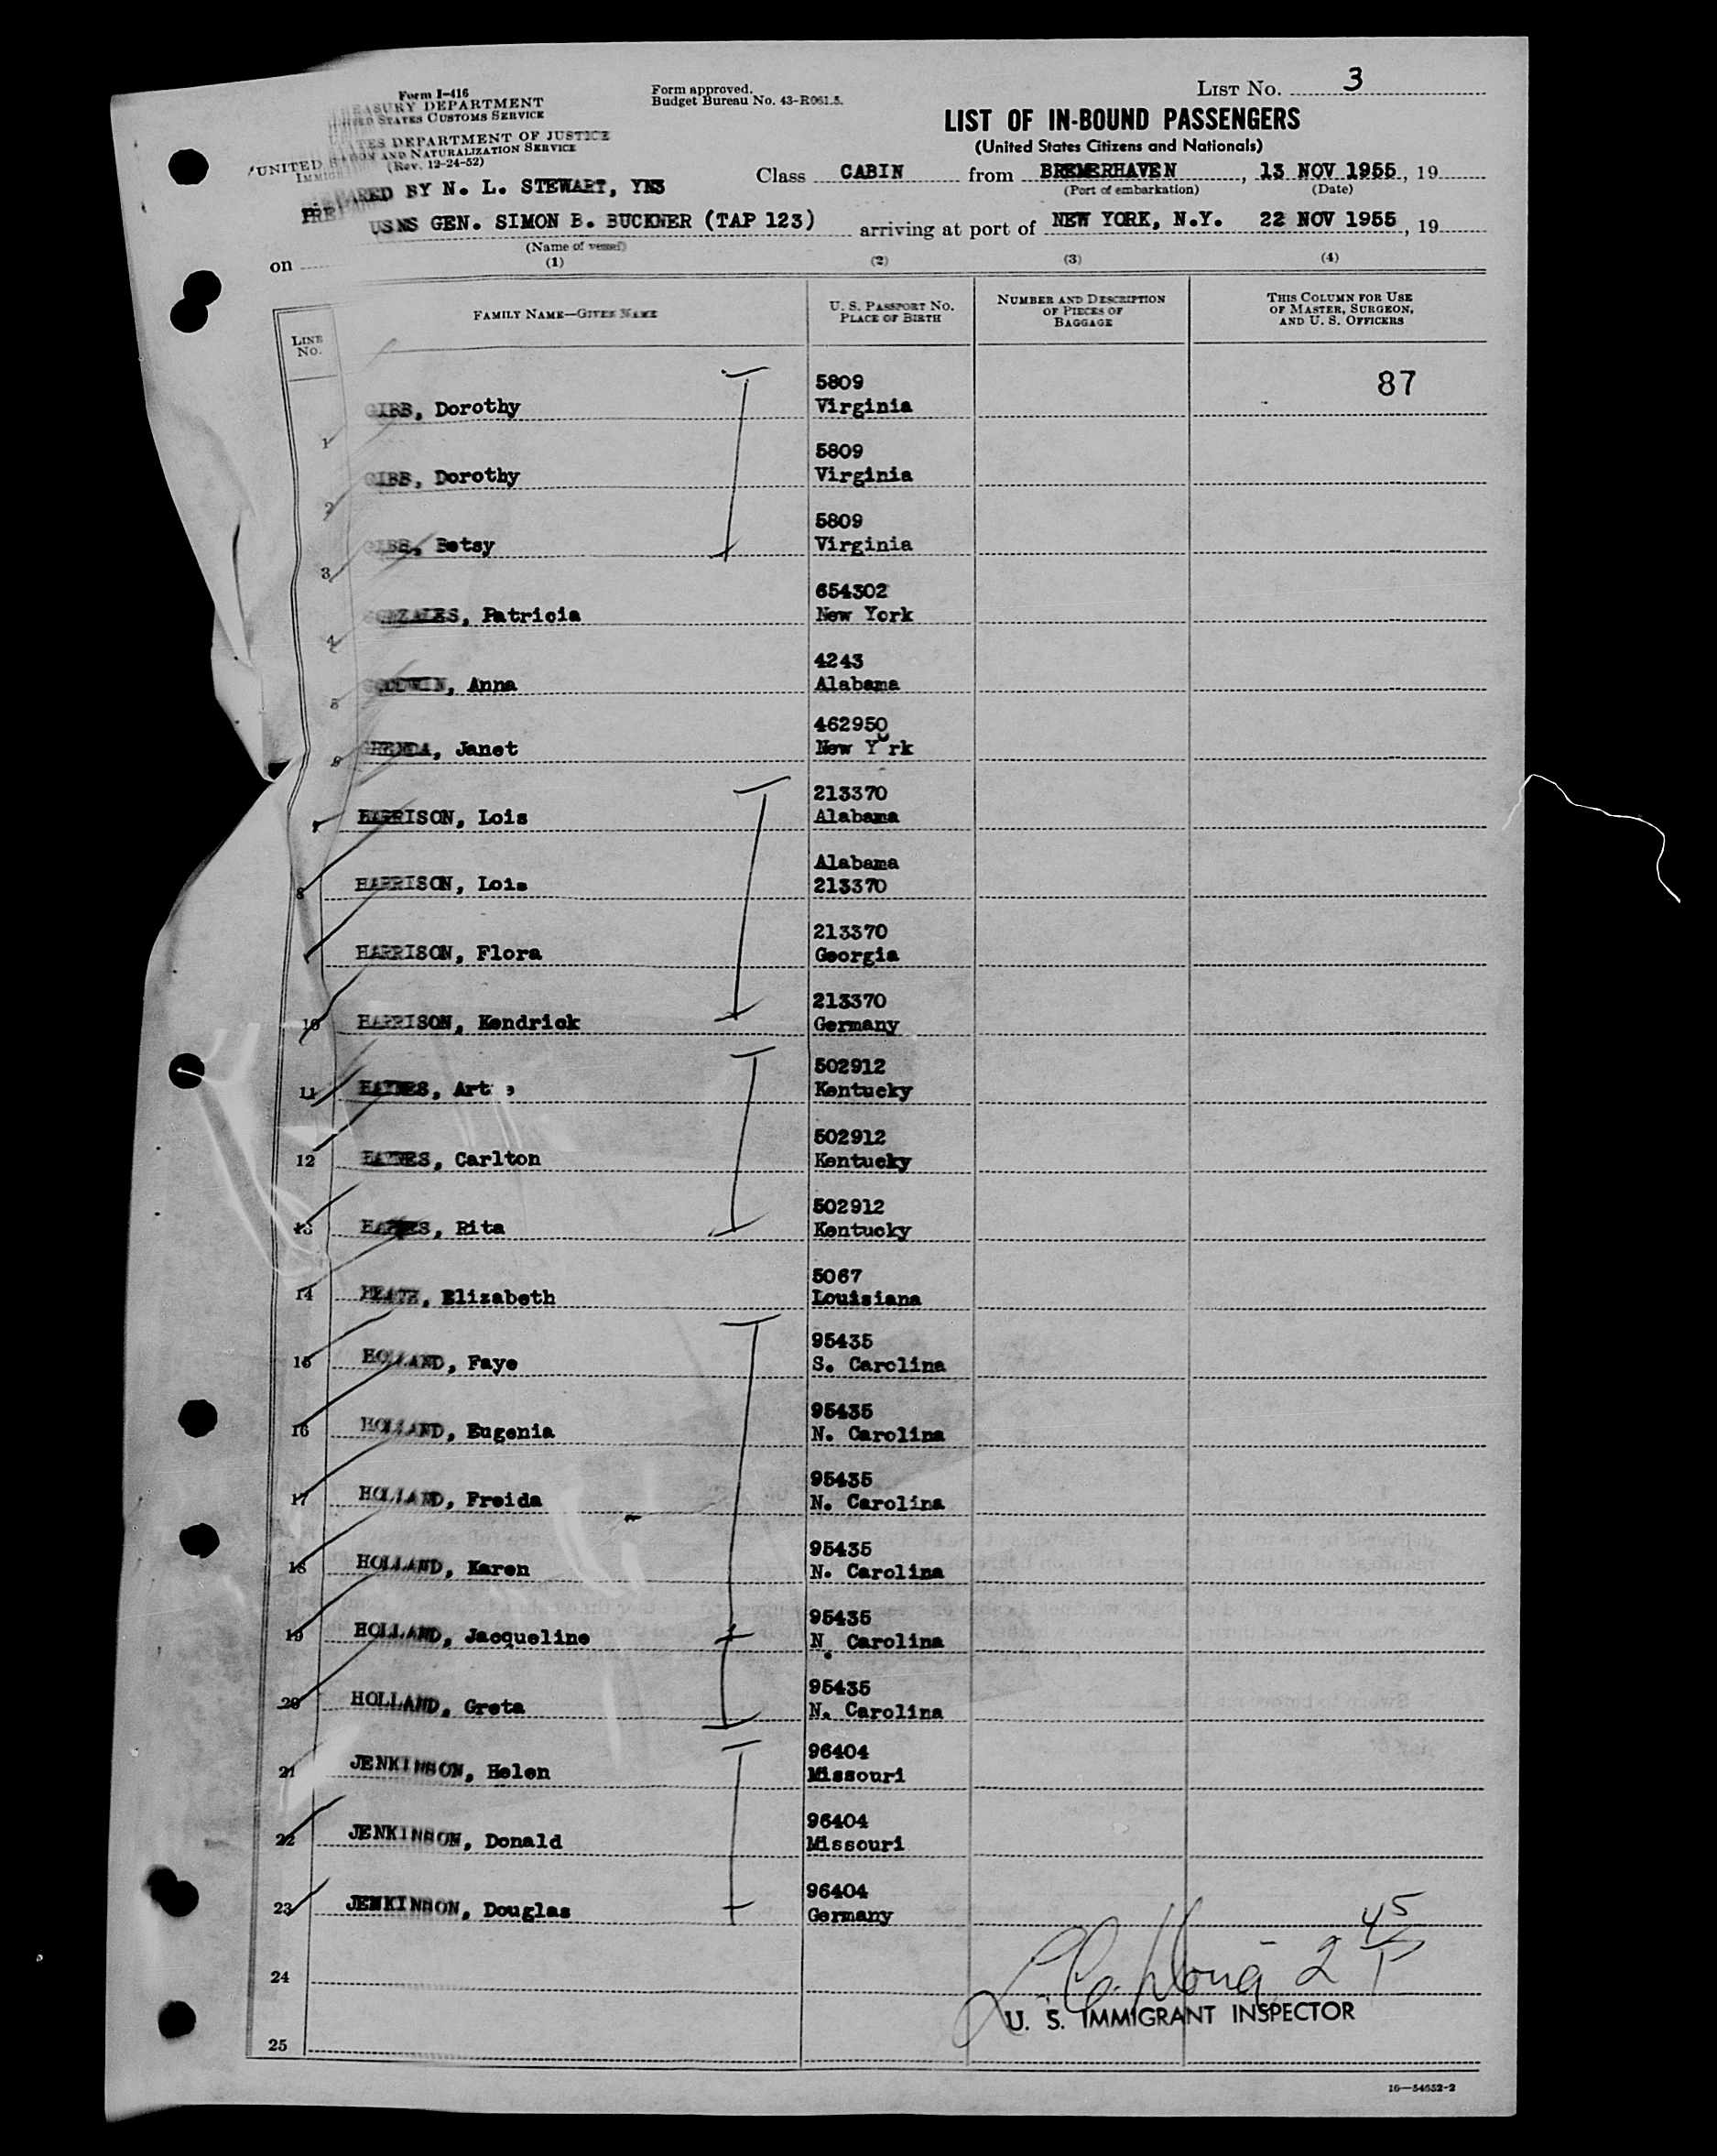 Form I-416
TREASURY DEPARTMENT
UNITED STATES CUSTOMS SERVICE
UNITED STATES DEPARTMENT OF JUSTICE
IMMIGRATION AND NATURALIZATION SERVICE
(Rev. 12-24-52)
Form approved.
Budget Bureau No. 43-R061.5.
LIST No. 3
LIST OF IN-BOUND PASSENGERS
(United States Citizens and Nationals)
PREPARED BY N. L. STEWART, YN3
Class CABIN from BREMERHAVEN, 13 NOV 1955, 19
(Port of embarkation) (Date)
on USNS GEN. SIMON B. BUCKNER (TAP 123) arriving at port of NEW YORK, N.Y. 22 NOV 1955, 19
(Name of vessel)
(1) (2) (3) (4)
LINE No.
FAMILY NAME—GIVEN NAME
U. S. PASSPORT NO.
PLACE OF BIRTH
NUMBER AND DESCRIPTION
OF PIECES OF
BAGGAGE
THIS COLUMN FOR USE
OF MASTER, SURGEON,
AND U. S. OFFICERS
87
5809
1 GIBB, Dorothy Virginia
5809
2 GIBB, Dorothy Virginia
5809
3 GIBB, Betsy Virginia
654302
4 GONZALES, Patricia New York
4243
5 GOODWIN, Anna Alabama
462950
6 Janet New York
213370
7 HARRISON, Lois Alabama
Alabama
8 HARRISON, Lois 213370
213370
9 HARRISON, Flora Georgia
213370
10 HARRISON, Kendrick Germany
502912
11 HAYNES, Art Kentucky
502912
12 HAYNES, Carlton Kentucky
502912
13 HAYNES, Rita Kentucky
5067
14 HEATH, Elizabeth Louisiana
95435
15 HOLLAND, Faye S. Carolina
95435
16 HOLLAND, Eugenia N. Carolina
95435
17 HOLLAND, Freida N. Carolina
95435
18 HOLLAND, Karen N. Carolina
95435
19 HOLLAND, Jacqueline N. Carolina
95435
20 HOLLAND, Greta N. Carolina
96404
21 JENKINSON, Helen Missouri
96404
22 JENKINSON, Donald Missouri
96404
23 JENKINSON, Douglas Germany
24
2 45 P
U. S. IMMIGRANT INSPECTOR
25
16—54652-2